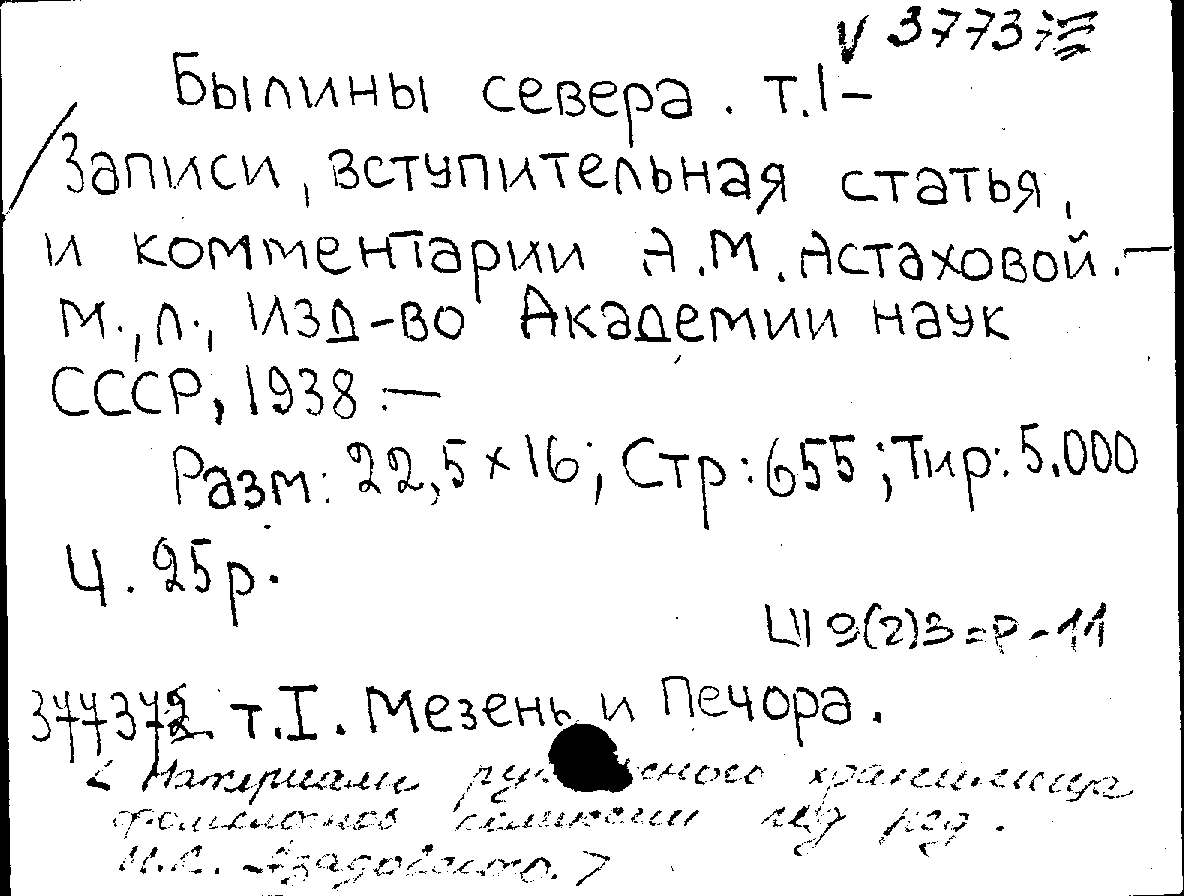 V 37737
Былины севера. т.I –
Записи, вступительная статья,
и комментарии А.М. Астаховой. –
М., Л., Изд-во Академии наук
СССР, 1938. –
Разм: 22,5 × 16; Стр: 655; Тир: 5.000
Ц. 25р.
9(2)3=Р-11
377372 т.I. Мезень и Печора.
< Материалы хранилища
фольклорной комиссии под ред.
М.К. Азадовского. >